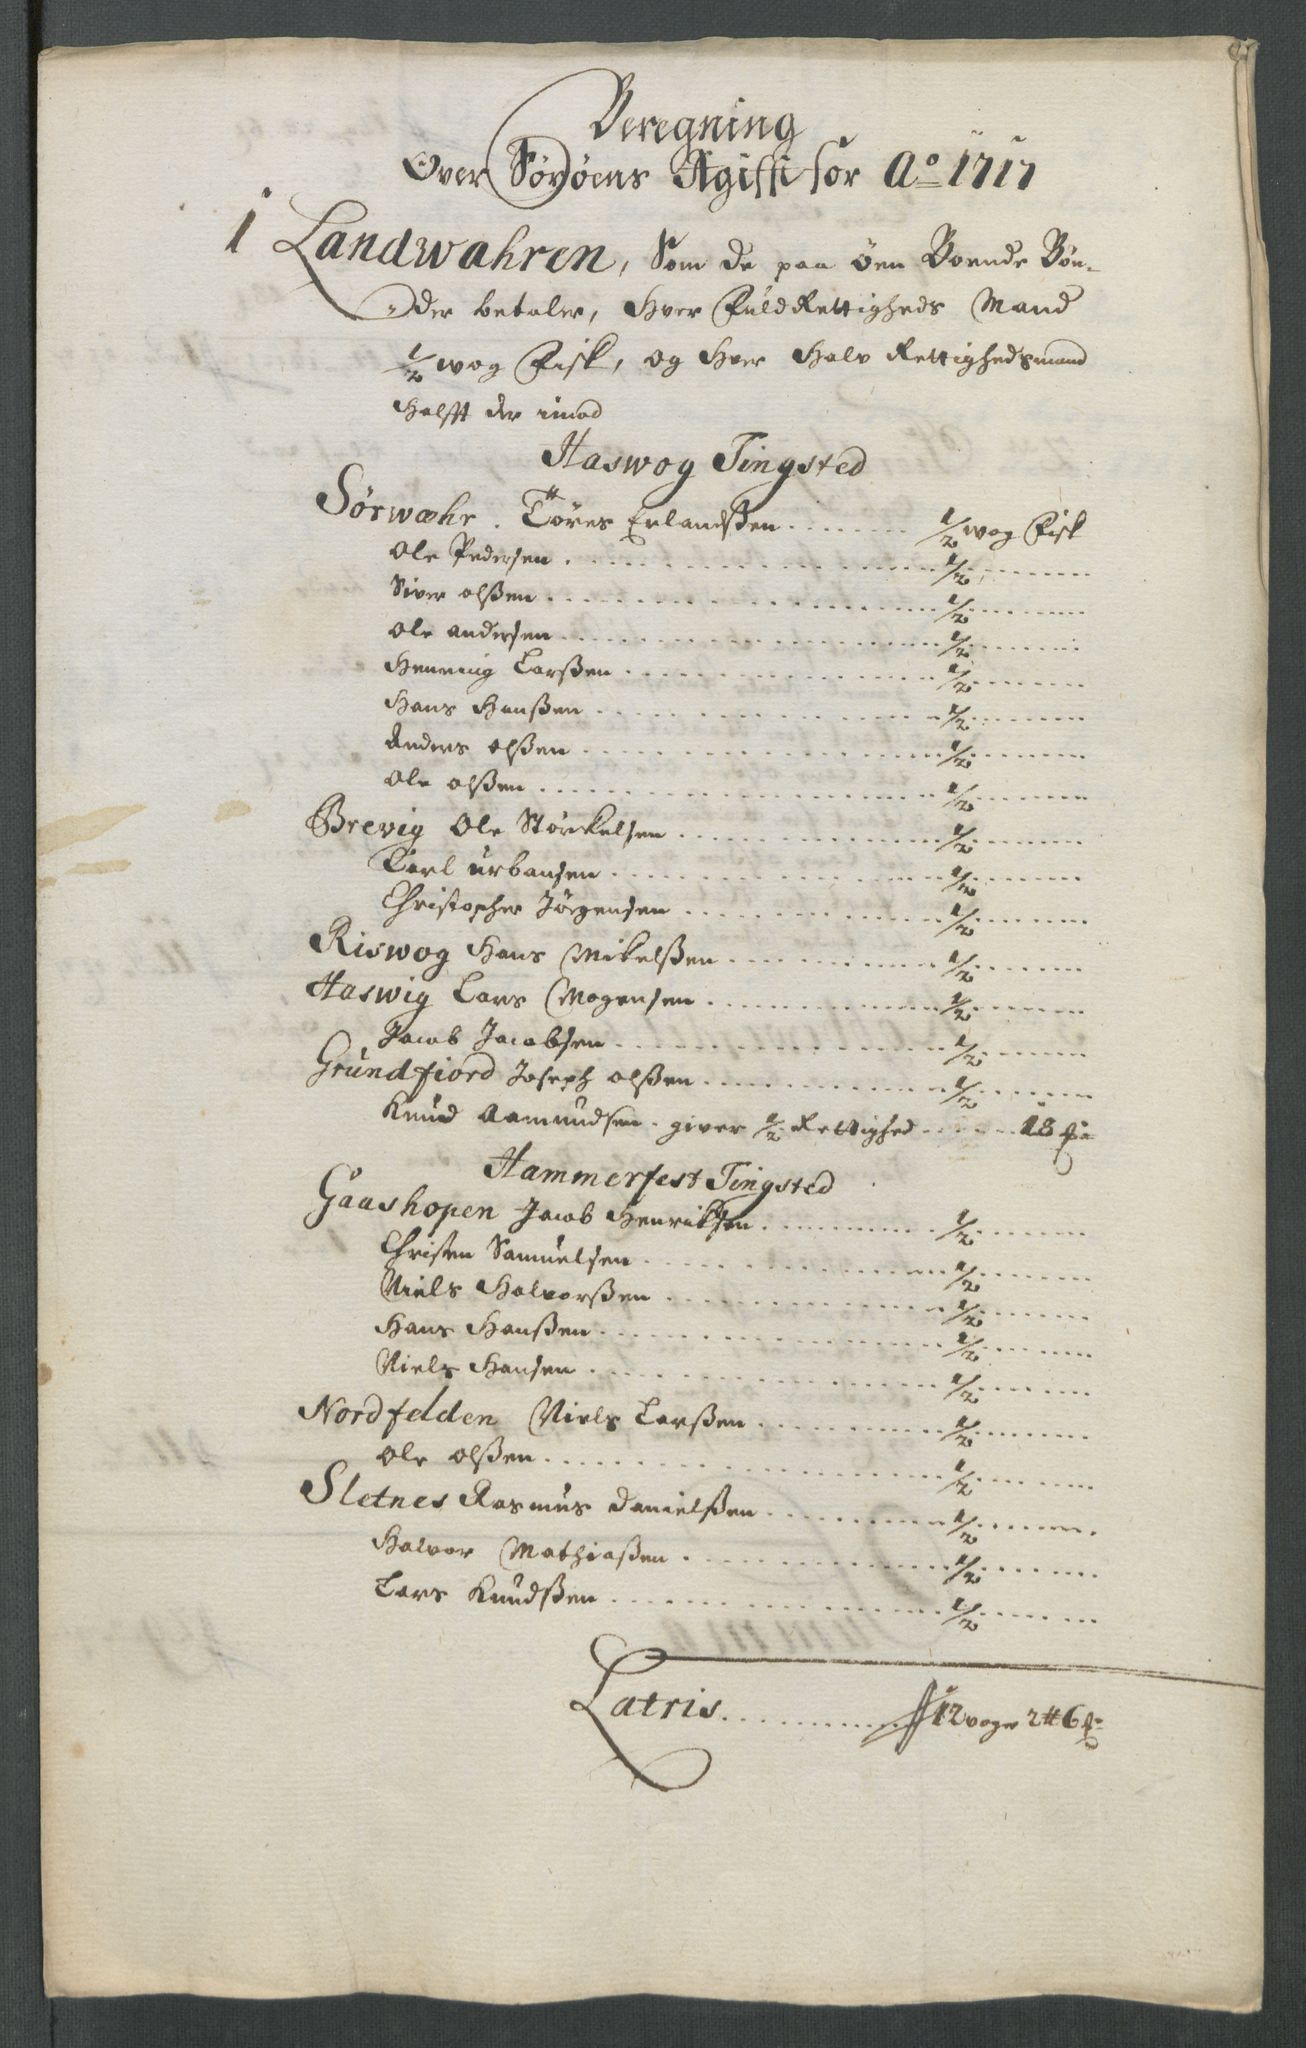 Beregning
Over Sørøens Afgifft for Ao 1717
1 Landwahren, Som de paa öen Boende Bøn-
der betaler, Hver Fuld Rettigheds Mand
1/2 wog Fisk, og Hver Halv Rettighedsmand
Halfft der imod
Haswog Tingsted
Sørwæhr. Törres Erlandßen ........ 1/2 wog Fisk
Ole Pedersen ........ 1/2
Siver olßen ........ 1/2
Ole andersen ........ 1/2
Henning Larßen ........ 1/2
Hans Hanßen ........ 1/2
Anders olßen ........ 1/2
Ole olßen ........ 1/2
Brevig Ole Størkelsen ........ 1/2
Carl urbansen ........ 1/2
Christopher Jörgensen ........ 1/2
Riswog Hans Mikelßen ........ 1/2
Haswig Lars Mogensen ........ 1/2
Jacob Jacobsen ........ 1/2
Grundfiord Joseph olßen ........ 1/2
Knud Aamundsen. giver 1/2 Rettighed ........ 18
Hammerfest Tingsted
Gaashopen Jacob Henriksen ........ 1/2
Christen Samuelsen ........ 1/2
Niels Halvorßen ........ 1/2
Hans Hanßen ........ 1/2
Niels Hansen ........ 1/2
Nordfelden Niels Larßen ........ 1/2
Ole olßen ........ 1/2
Sletnes Rasmus Danielßen ........ 1/2
Halvor Mathiaßen ........ 1/2
Lars Knudßen ........ 1/2
Latris ........ 12 voger 2 ℔ 6